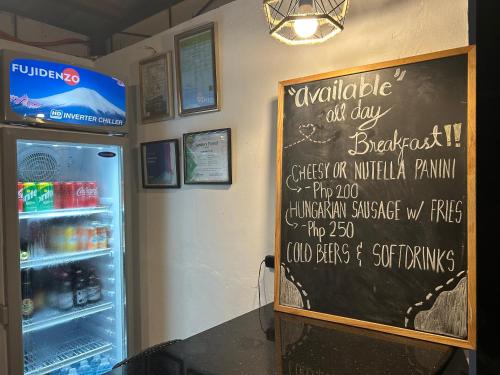 FUJIDENZO
HD INVERTER CHILLER
"available"
all day
Breakfast!!
CHEESY OR NUTELLA PANINI
- Php 200
HUNGARIAN SAUSAGE W/ FRIES
- Php 250
COLD BEERS & SOFTDRINKS